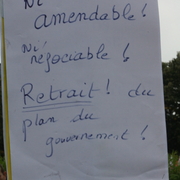 Ni
amendable !
Ni
négociable !
Retrait ! du
plan du
gouvernement !